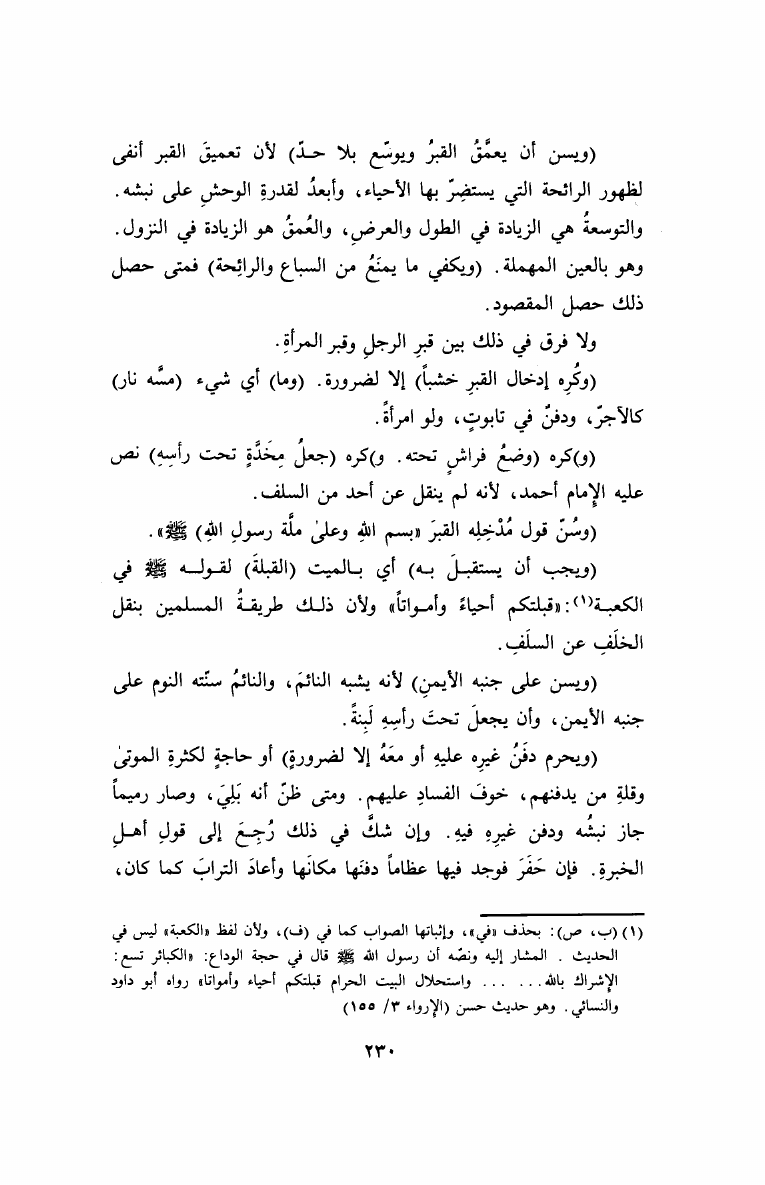 (ويسن أن يعمَّقُ القبرُ ويوسّع بلا حـدّ) لأن تعميقَ القبر أنفى
لظهور الرائحة التي يستضِرّ بها الأحياء، وأبعدُ لقدرةِ الوحشِ على نبشه.
والتوسعةُ هي الزيادة في الطول والعرضِ، والعُمقُ هو الزيادة في النزول.
وهو بالعين المهملة. (ويكفي ما يمنَعُ من السباع والرائِحة) فمتى حصل
ذلك حصل المقصود.
ولا فرق في ذلك بين قبرِ الرجلِ وقبر المرأةِ.
(وكُرِه إدخال القبرِ خشباً) إلا لضرورة. (وما) أي شيء (مسَّه نار)
كالآجرّ، ودفنٌ في تابوتٍ، ولو امرأةً.
(و)كره (وضعُ فراشٍ تحته. و)كره (جعلُ مِخَدَّةٍ تحت رأسِهِ) نص
عليه الإمام أحمد، لأنه لم ينقل عن أحد من السلف.
(وسُنّ قول مُدْخِلِه القبرَ «بسم اللهِ وعلىٰ ملَّة رسولِ اللهِ) ﷺ».
(ويجب أن يستقبـلَ بـه) أي بـالميت (القبلةَ) لقـولـه ﷺ في
الكعبـة(١): «قبلتكم أحياءً وأمـواتاً» ولأن ذلـك طريقـةُ المسلمين بنقل
الخلَفِ عن السلَفِ.
(ويسن على جنبه الأيمنِ) لأنه يشبه النائمَ، والنائمُ سنّته النوم على
جنبه الأيمن، وأن يجعلَ تحتَ رأسِهِ لَبِنةً.
(ويحرم دفَنُ غيرِه عليهِ أو معَهُ إلا لضرورةٍ) أو حاجةٍ لكثرةِ الموتىٰ
وقلةِ من يدفنهم، خوفَ الفسادِ عليهم. ومتى ظنّ أنه بَلِيَ، وصار رميماً
جاز نبشُه ودفن غيرِهِ فيهِ. وإن شكَّ في ذلك رُجِـعَ إلى قولِ أهـلِ
الخبرةِ. فإن حَفَرَ فوجد فيها عظاماً دفنَها مكانَها وأعادَ الترابَ كما كان،
(١) (ب، ص): بحذف «في»، وإثباتها الصواب كما في (ف)، ولأن لفظ «الكعبة» ليس في
الحديث . المشار إليه ونصّه أن رسول الله ﷺ قال في حجة الوداع: «الكبائر تسع:
الإشراك بالله... ... واستحلال البيت الحرام قبلتكم أحياء وأمواتا» رواه أبو داود
والنسائي. وهو حديث حسن (الإرواء ٣/ ١٥٥)
٢٣٠